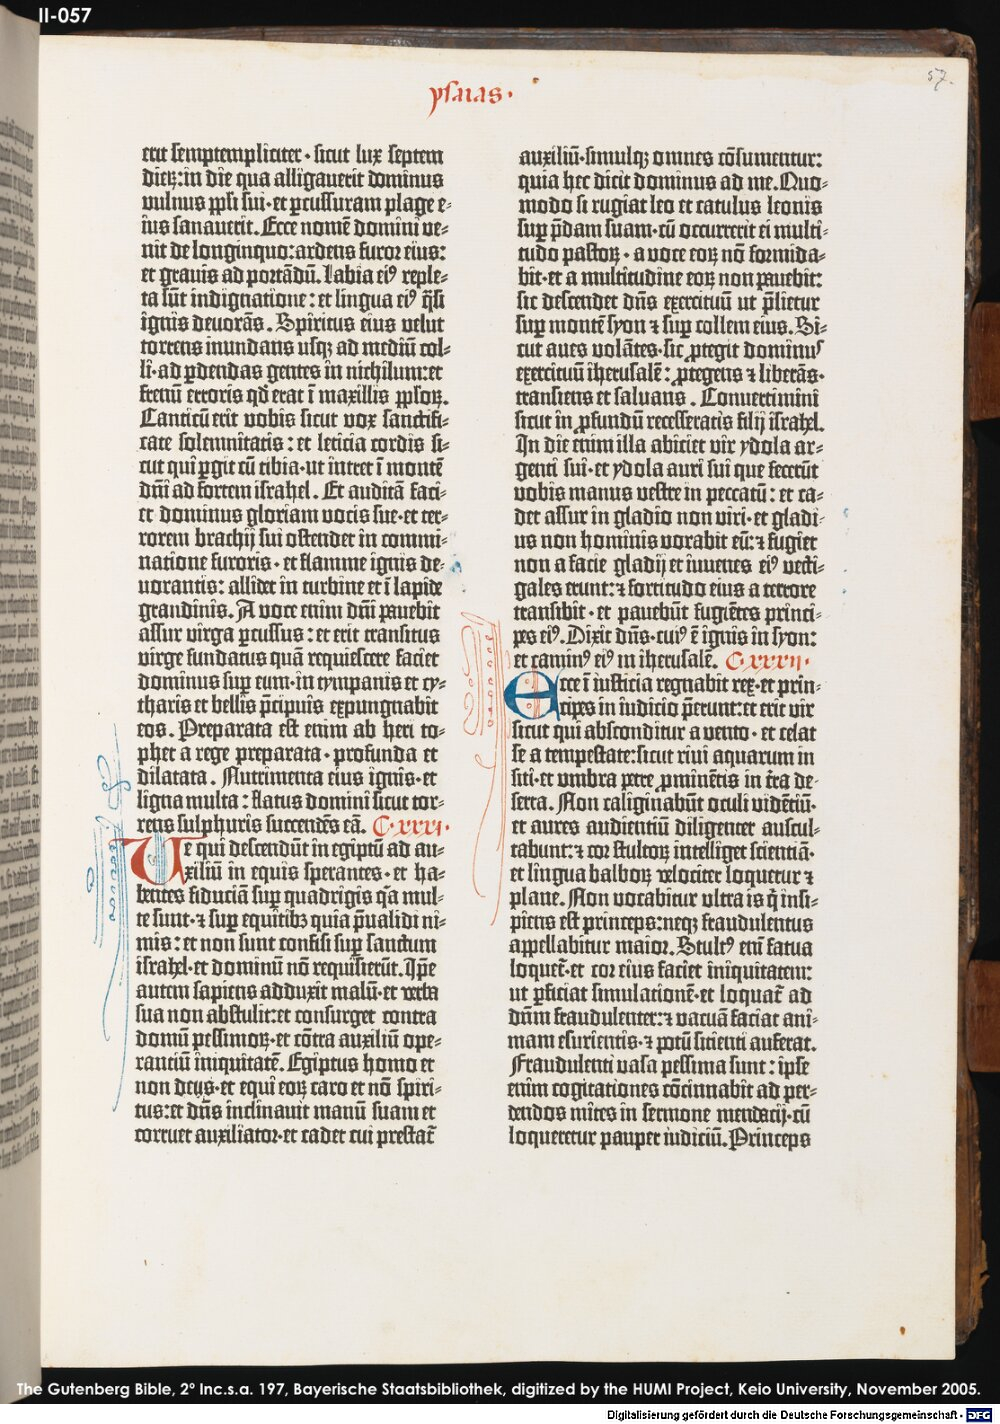 II-057
57.
ysaias·
erit semptempliciter · sicut lux septem
dieꝝ: in die qua alligauerit dominus
vulnus ppli sui · et ꝑcussuram plage e⸗
ius sanauerit. Ecce nomē domini ve⸗
nit de longinquo: ardens furor eius:
et grauis ad portādū. Labia eiꝰ reple⸗
ta sūt indignatione: et lingua eiꝰ q̄si
ignis deuorās. Spiritus eius velut
torrens inundans usqꝫ ad mediū col⸗
li · ad ꝑdendas gentes in nichilum: et
frenū erroris qd̓ erat ī maxillis pploꝝ.
Canticū erit vobis sicut vox sanctifi⸗
cate solennitatis: et leticia cordis si⸗
cut qui ꝑgit cū tibia · ut intret ī montē
dn̄i ad fortem israhel. Et auditā faci⸗
et dominus gloriam vocis sue · et ter⸗
rorem brachij sui ostendet in commi⸗
natione furoris · et flamme ignis de⸗
uorantis: allidet in turbine et ī lapide
grandinis. A voce enim dn̄i pauebit
assur virga ꝑcussus: et erit transitus
virge fundatus quā requiescere faciet
dominus suꝑ eum · in tympanis et cy⸗
tharis et bellis p̄cipuis expungnabit
eos. Preparata est enim ab heri to⸗
phet a rege preparata · profunda et
dilatata. Nutrimenta eius ignis · et
ligna multa: flatus domini sicut tor⸗
rens sulphuris succendēs eā. C·xxxi·
Ue qui descendūt in egiptū ad au⸗
xiliū in equis sperantes · et ha⸗
bentes fiduciā suꝑ quadrigis q̄a mul⸗
te sunt · ⁊ suꝑ equitibꝫ quia p̄ualidi ni⸗
mis: et non sunt confisi suꝑ sanctum
israhel · et dominū nō requisierūt. Ip̄e
autem sapiens adduxit malū · et verba
sua non abstulit: et consurget contra
domū pessimoꝝ · et cōtra auxiliū ope⸗
rantiū iniquitatē. Egiptus homo et
non deus · et equi eoꝝ caro et nō spiri⸗
tus: et dn̄s inclinauit manū suam et
corruet auxiliator · et cadet cui prestat̄
auxiliū · simulqꝫ omnes cōsumentur:
quia hec dicit dominus ad me. Quo⸗
modo si rugiat leo et catulus leonis
suꝑ p̄dam suam · cū occurrerit ei multi⸗
tudo pastoꝝ · a voce eoꝝ nō formida⸗
bit · et a multitudine eoꝝ non pauebit:
sic descendet dn̄s exercituū ut p̄lietur
suꝑ montē syon ⁊ suꝑ collem eius. Si⸗
cut aues volātes · sic ꝓtegit dominus
exercituū iherusalē: ꝓtegens ⁊ liberās ·
transiens et saluans. Conuertimini
sicut in ꝓfundū recesseratis filij israhel.
In die enim illa abiciet vir ydola ar⸗
genti sui · et ydola auri sui que fecerūt
vobis manus vestre in peccatū: et ca⸗
det assur in gladio non viri · et gladi⸗
us non hominis vorabit eū: ⁊ fugiet
non a facie gladij et iuuenes eiꝰ vecti⸗
gales erunt: ⁊ fortitudo eius a terrore
transibit · et pauebūt fugiētes princi⸗
pes eiꝰ. Dixit dn̄s · cuiꝰ ē ignis in syon:
et caminꝰ eiꝰ in iherusalē. C·xxxii·
Ecce ī iusticia regnabit rex · et prin⸗
cipes in iudicio p̄erunt: et erit vir
sicut qui absconditur a vento · et celat
se a tempestate: sicut riui aquarum in
siti · et vmbra petre ꝓminētis in t̄ra de⸗
serta. Non caliginabūt oculi vidētiū ·
et aures audientiū diligenter auscul⸗
tabunt: ⁊ cor stultoꝝ intelliget scientiā ·
et lingua balboꝝ velociter loquetur ⁊
plane. Non vocabitur vltra is q̄ insi⸗
piens est princeps: neqꝫ fraudulentus
appellabitur maior. Stultꝰ eni̅ fatua
loquet̄ · et cor eius faciet iniquitatem:
ut ꝑficiat simulationē · et loquat̄ ad
dn̄m fraudulenter: ⁊ vacuā faciat ani⸗
mam esurientis · ⁊ potū sitienti auferat.
Fraudulenti vasa pessima sunt: ipse
enim cogitationes cōcinnabit ad per⸗
dendos mites in sermone mendacij · cū
loqueretur pauper iudiciū. Princeps
The Gutenberg Bible, 2° Inc.s.a. 197, Bayerische Staatsbibliothek, digitized by the HUMI Project, Keio University, November 2005.
Digitalisierung gefördert durch die Deutsche Forschungsgemeinschaft - DFG